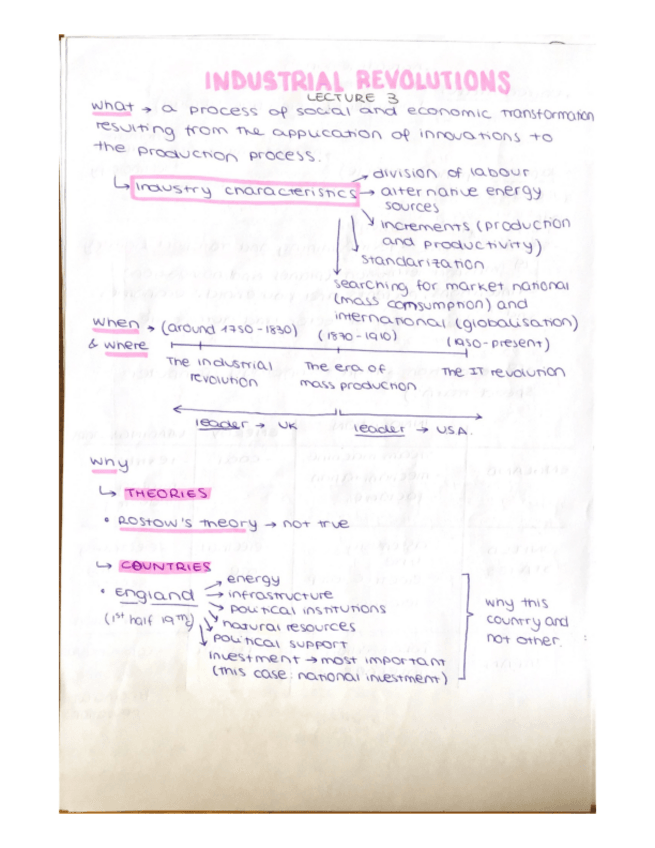 INDUSTRIAL REVOLUTIONS
LECTURE 3
what → a process of social and economic transformation
resulting from the application of innovations to
the production process.
↳ industry characteristics → division of labour
→ alternative energy
sources
↘ increments (production
and productivity)
↓ standarization
↓ searching for market national
(mass comsumption) and
international (globalisation)
when → (around 1750-1830) (1870-1910) (1950-present)
& where
The industrial The era of The IT revolution
revolution mass production
leader → UK leader → USA.
why
↳ THEORIES
• ROSTOW'S theory → not true
↳ COUNTRIES
• England → energy
(1st half 19th c) → infrastructure
↘ political institutions
↘ natural resources
↓ political support
investment → most important
(this case: national investment)
why this
country and
not other.